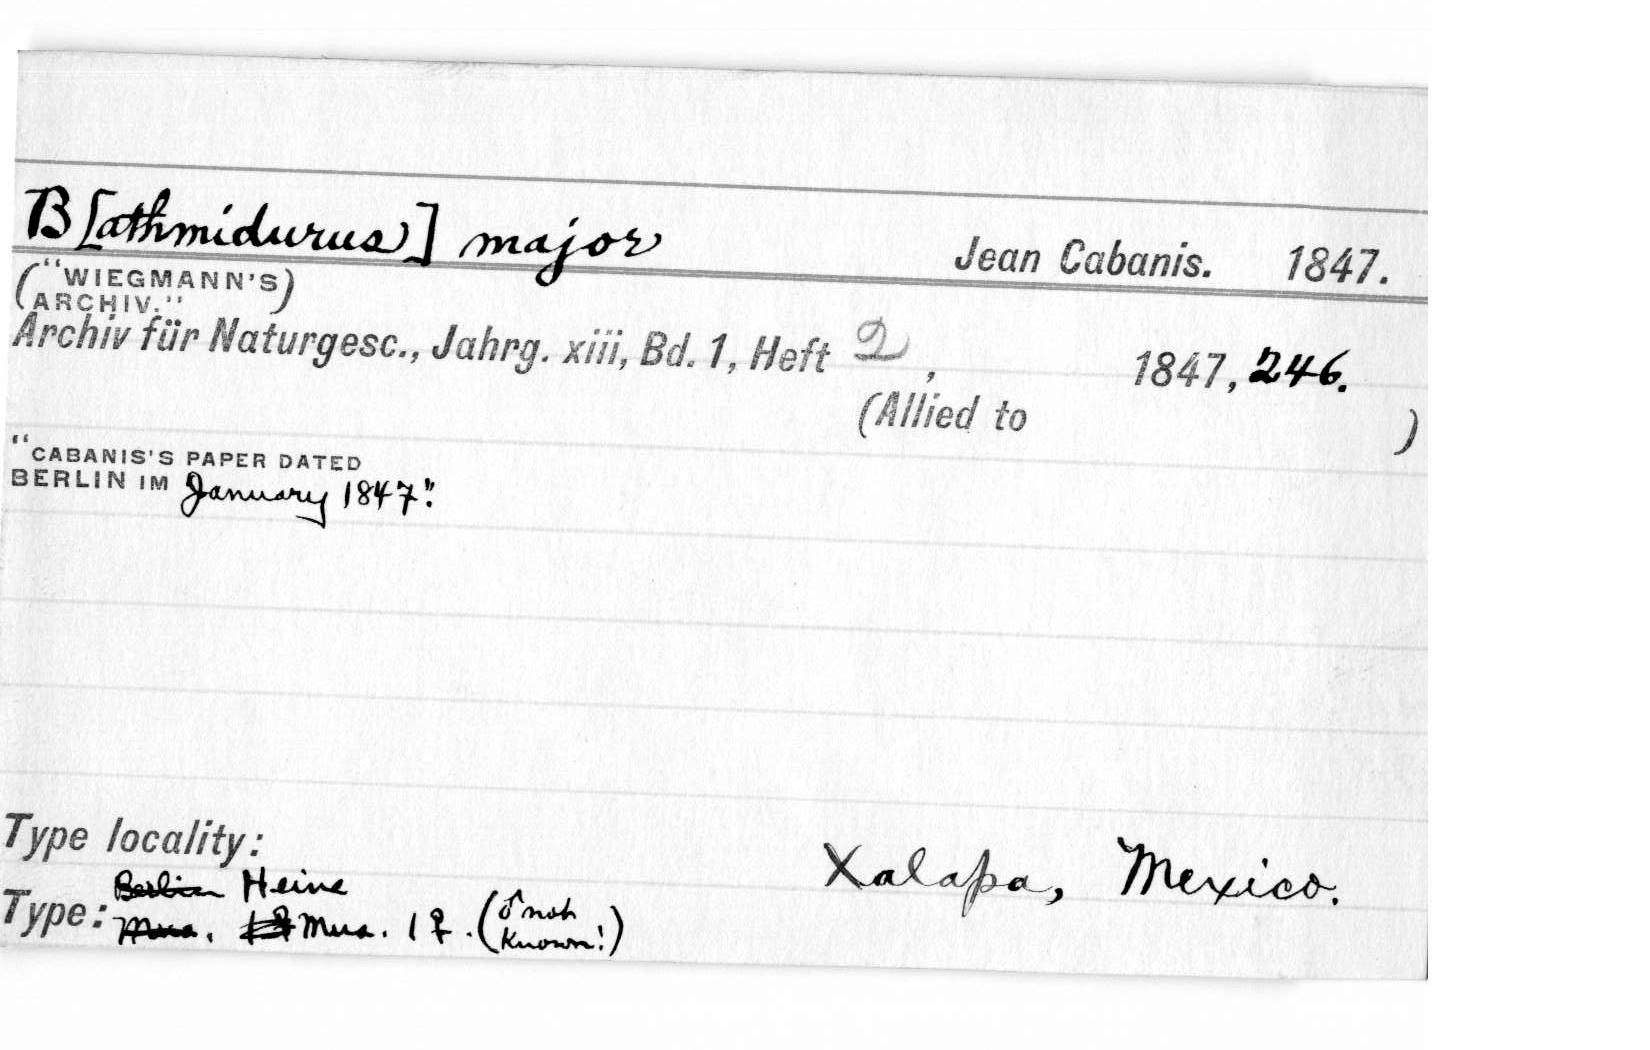 B[athmidurus] major Jean Cabanis. 1847.
("WIEGMANN'S)
(ARCHIV."
Archiv für Naturgesc., Jahrg. xiii, Bd. 1, Heft 2, 1847, 246.
(Allied to )
"CABANIS'S PAPER DATED
BERLIN IM January 1847".
Type locality:
Xalapa, Mexico.
Berlin Heine
Type: Mus. 1♀ Mus. 1♀. (♂ not
known!)